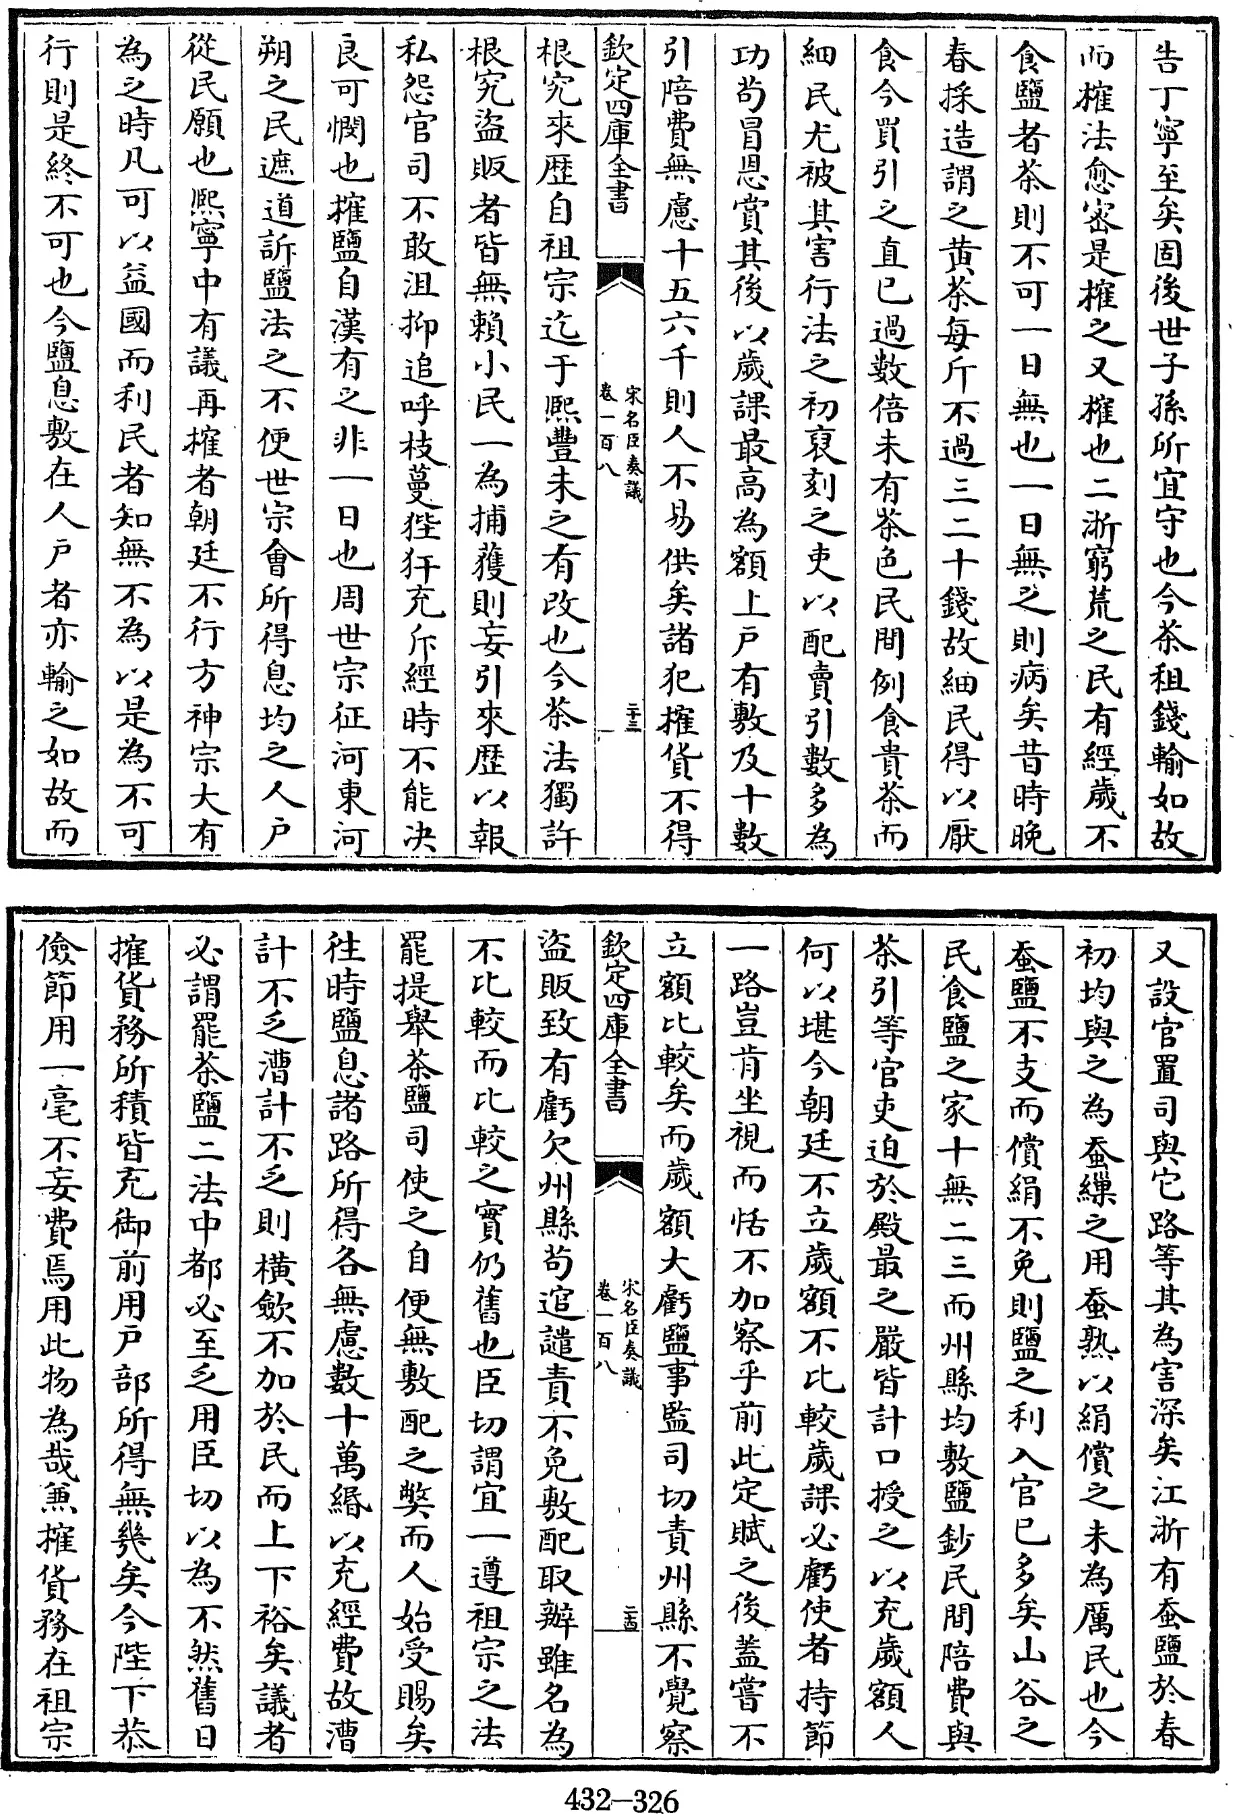 告丁寧至矣固後世子孫所宜守也今茶租錢輸如故
而榷法愈宻是榷之又榷也二浙窮荒之民有經歲不
食鹽者茶則不可一日無也一日無之則病矣昔時晩
春採造謂之黄茶每斤不過三二十錢故細民得以厭
食今買引之直已過數倍未有茶色民間例食貴茶而
細民尤被其害行法之初裒刻之吏以配賣引數多為
功苟冒恩賞其後以歲課最高為額上戸有敷及十數
引陪費無慮十五六千則人不易供矣諸犯搉貨不得
欽定四庫全書
宋名臣奏議
卷一百八
二十三
根究來歴自祖宗迄于熈豐未之有改也今茶法獨許
根究盜販者皆無賴小民一為捕獲則妄引來歴以報
私怨官司不敢沮抑追呼枝蔓狴犴充斥經時不能决
良可憫也搉鹽自漢有之非一日也周世宗征河東河
朔之民遮道訴鹽法之不便世宗會所得息均之人戸
從民願也熈寧中有議再搉者朝廷不行方神宗大有
為之時凡可以益國而利民者知無不為以是為不可
行則是終不可也今鹽息敷在人戸者亦輸之如故而
又設官置司與它路等其為害深矣江浙有蚕鹽於春
初均與之為蚕繅之用蚕熟以絹償之未為厲民也今
蚕鹽不支而償絹不免則鹽之利入官已多矣山谷之
民食鹽之家十無二三而州縣均敷鹽鈔民間陪費與
茶引等官吏迫於殿最之嚴皆計口授之以充歲額人
何以堪今朝廷不立歲額不比較歲課必虧使者持節
一路豈肯坐視而恬不加察乎前此定賦之後蓋嘗不
立額比較矣而歲額大虧鹽事監司切責州縣不覺察
欽定四庫全書
宋名臣奏議
卷一百八
二十四
盜販致有虧欠州縣苟逭譴責不免敷配取辦雖名為
不比較而比較之實仍舊也臣切謂宜一遵祖宗之法
罷提舉茶鹽司使之自便無敷配之獘而人始受賜矣
往時鹽息諸路所得各無慮數十萬緡以充經費故漕
計不乏漕計不乏則橫歛不加於民而上下裕矣議者
必謂罷茶鹽二法中都必至乏用臣切以為不然舊日
搉貨務所積皆充御前用戸部所得無幾矣今陛下恭
儉節用一毫不妄費焉用此物為哉兼搉貨務在祖宗
432-326